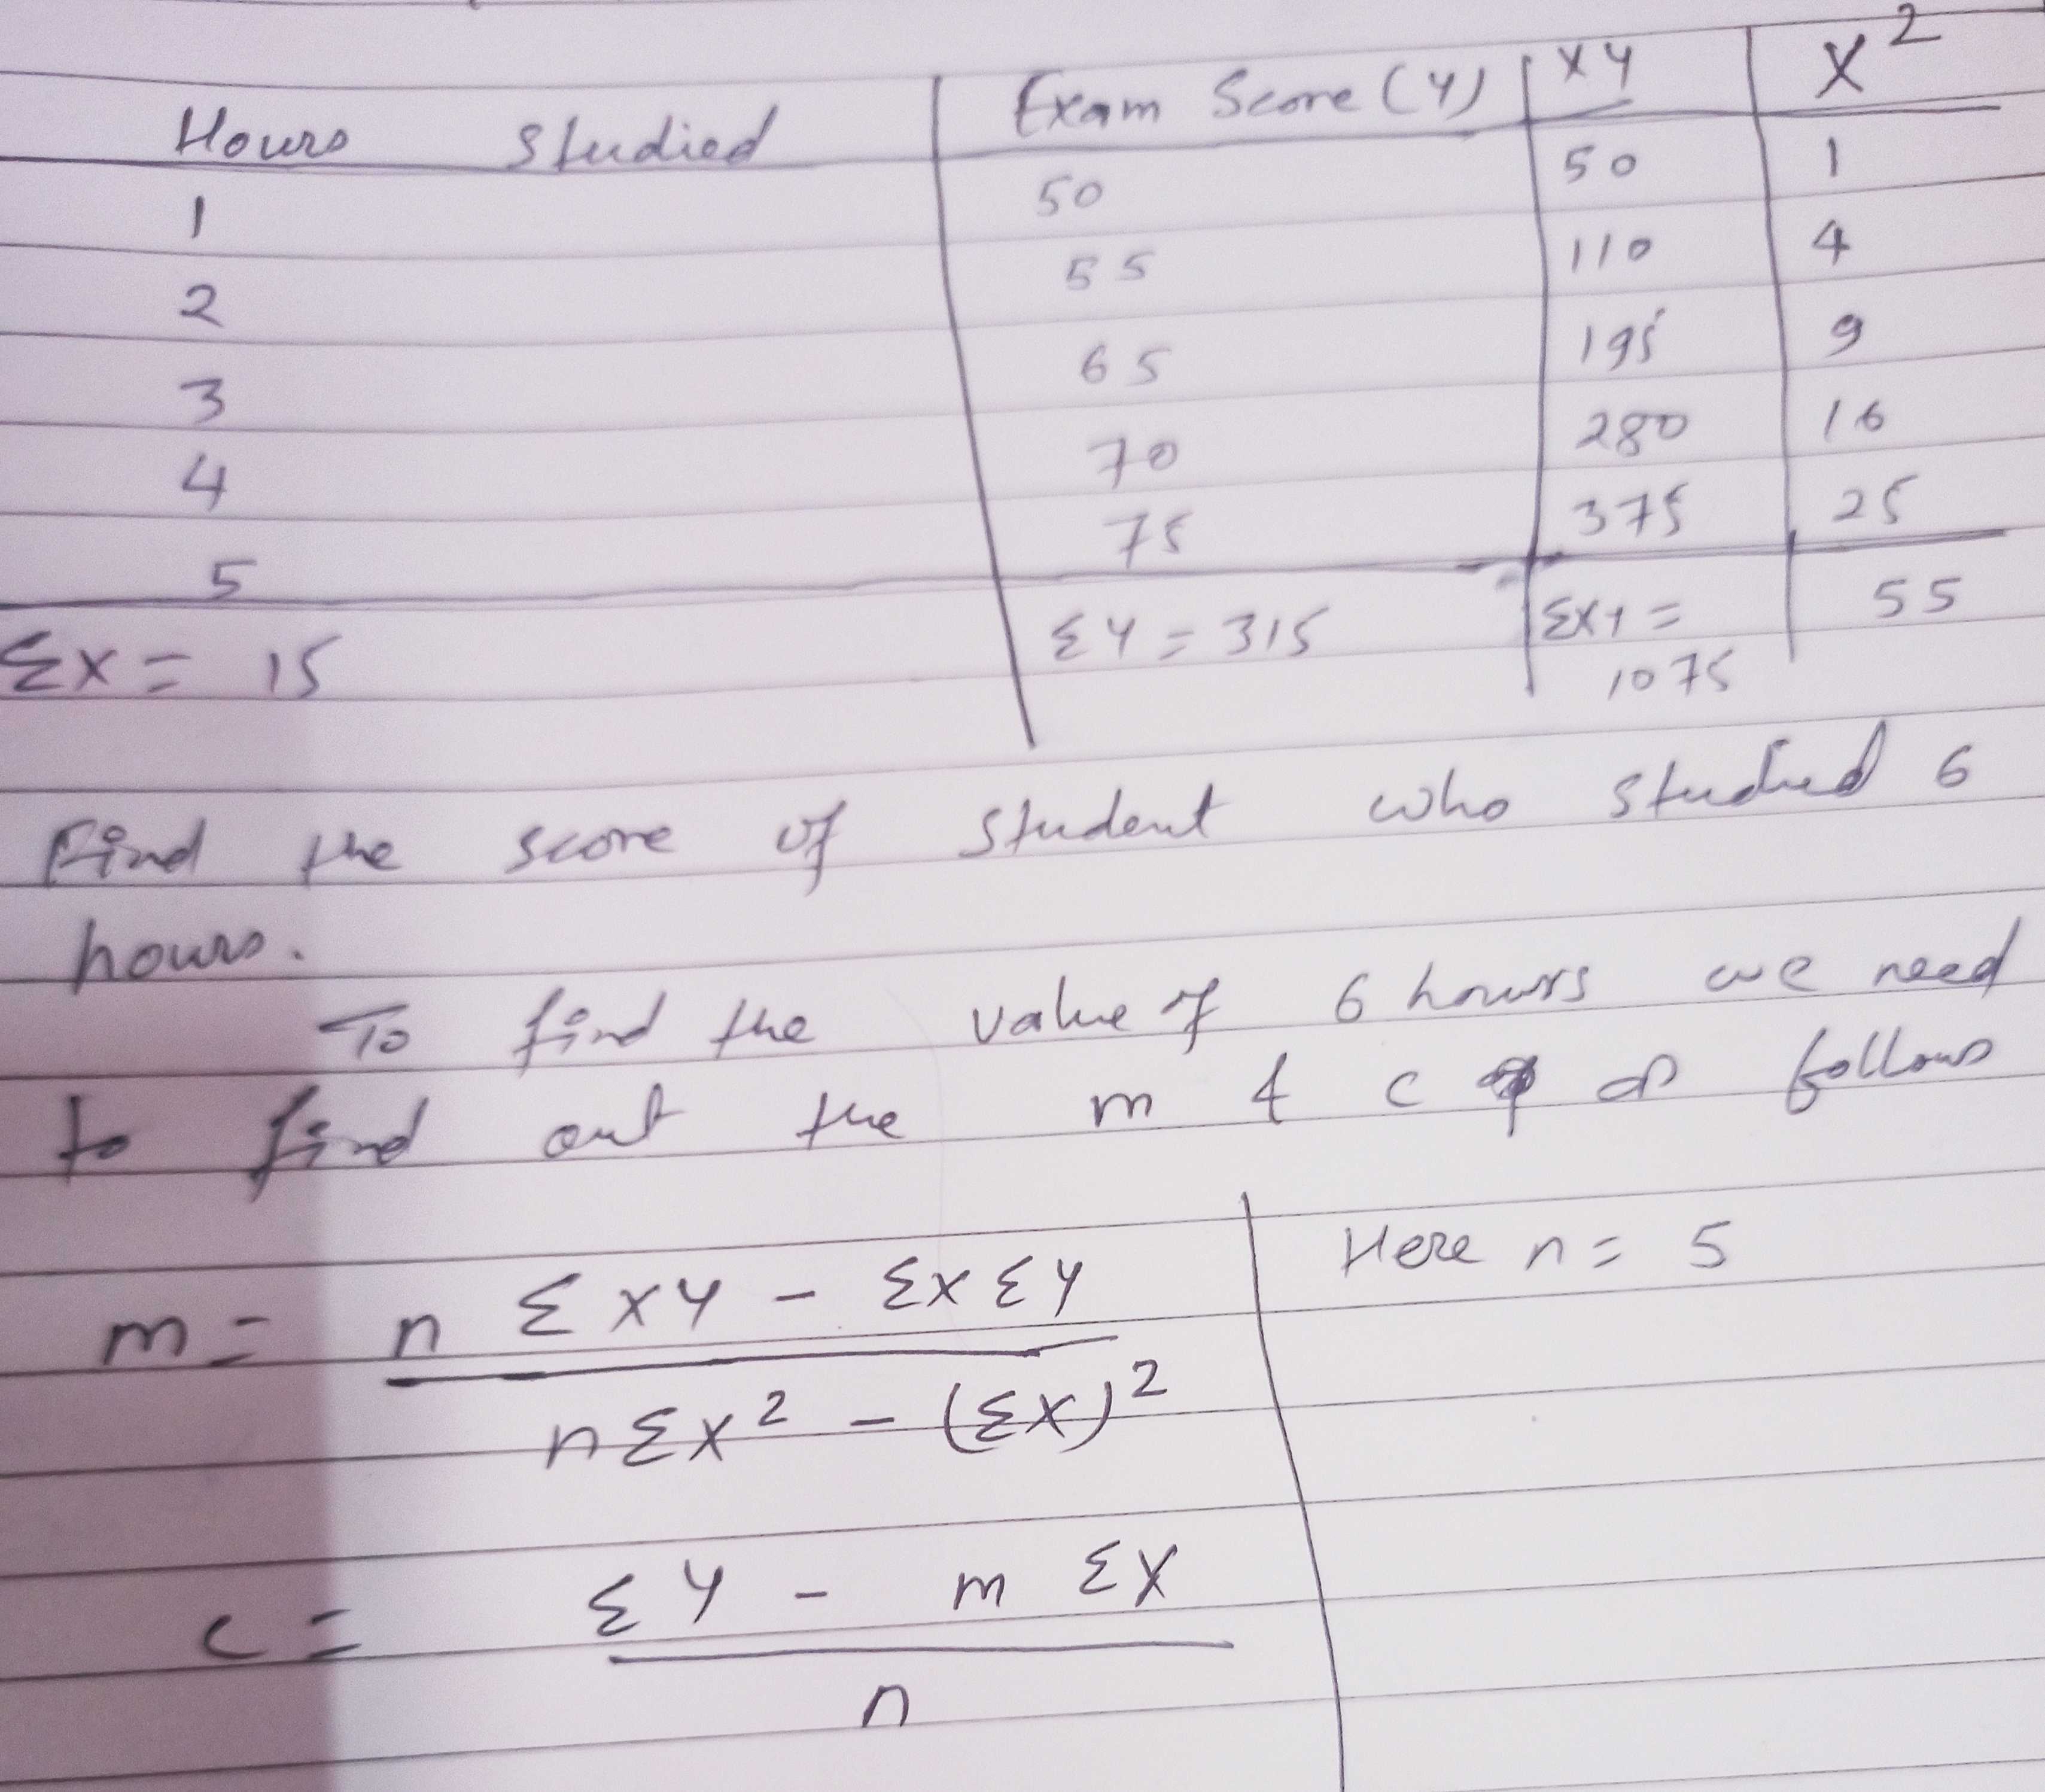 Hours Studied Exam Score (Y) XY X²
1 50 50 1
2 55 110 4
3 65 195 9
4 70 280 16
5 75 375 25
ΣX = 15 ΣY = 315 ΣXY = 55
1075
Find the score of student who studied 6
hours.
To find the value of 6 hours we need
to find out the m & c as follows
m = n ΣXY - ΣXΣY Here n = 5
nΣX² - (ΣX)²
c = ΣY - m ΣX
n